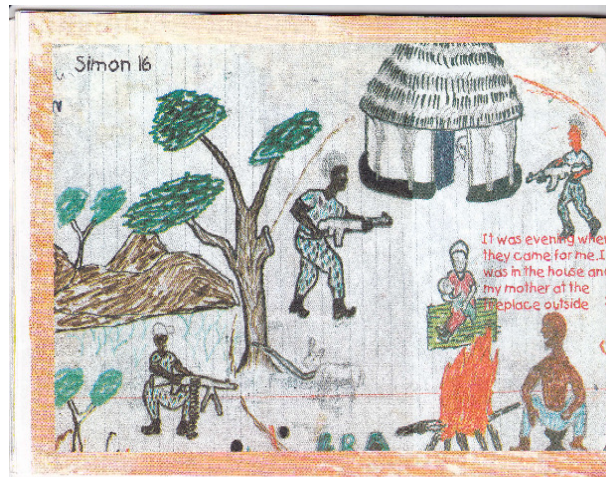 Simon 16
It was evening when
they came for me. I
was in the house and
my mother at the
fireplace outside